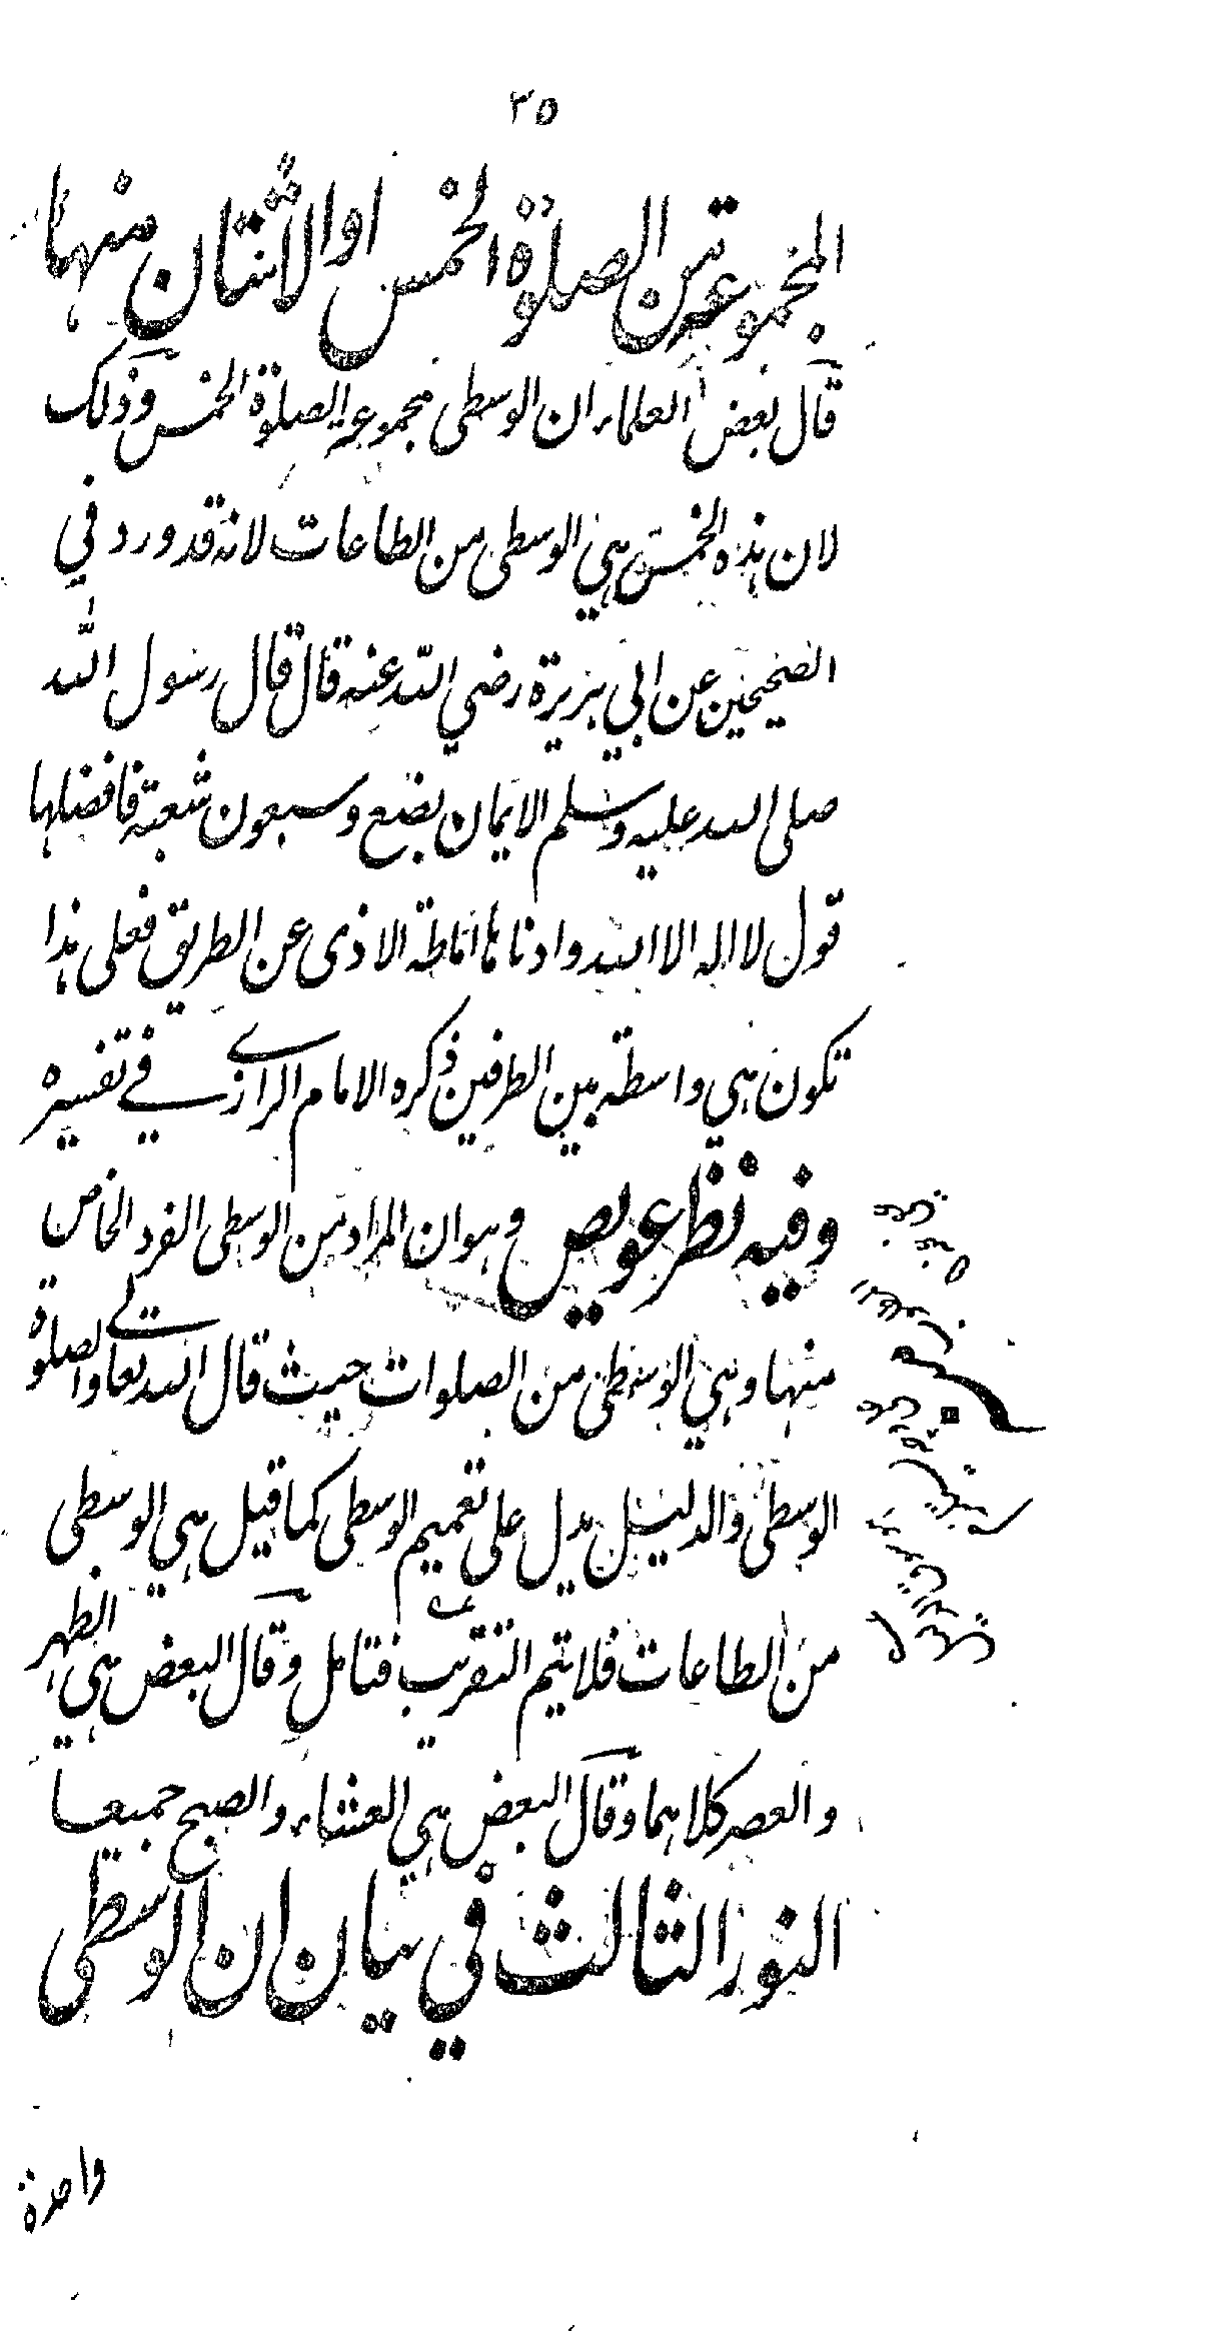 ٣٥
المجموعة من الصلوة الخمس او الاثنتان منها
قال بعض العلماء ان الوسطى مجموعة الصلوة الخمس وذلك
لان هذه الخمس هي الوسطى من الطاعات لانه قد ورد في
الصحيحين عن ابي هريرة رضي الله عنه قال قال رسول الله
صلى الله عليه وسلم الايمان بضع وسبعون شعبة فافضلها
قول لا اله الا الله وادناها اماطة الاذى عن الطريق فعلى هذا
تكون هي واسطة بين الطرفين ذكره الامام الرازي في تفسيره
وفيه نظر عويص وهو ان المراد من الوسطى الفرد الخاص
منها وهي الوسطى من الصلوات حيث قال الله تعالى والصلوة
الوسطى والدليل يدل على تعميم الوسطى كما قيل هي الوسطى
من الطاعات فلا يتم التقريب فتامل وقال البعض هي الظهر
والعصر كلاهما وقال البعض هي العشاء والصبح جميعا
النور الثالث في بيان ان الوسطى
واحدة